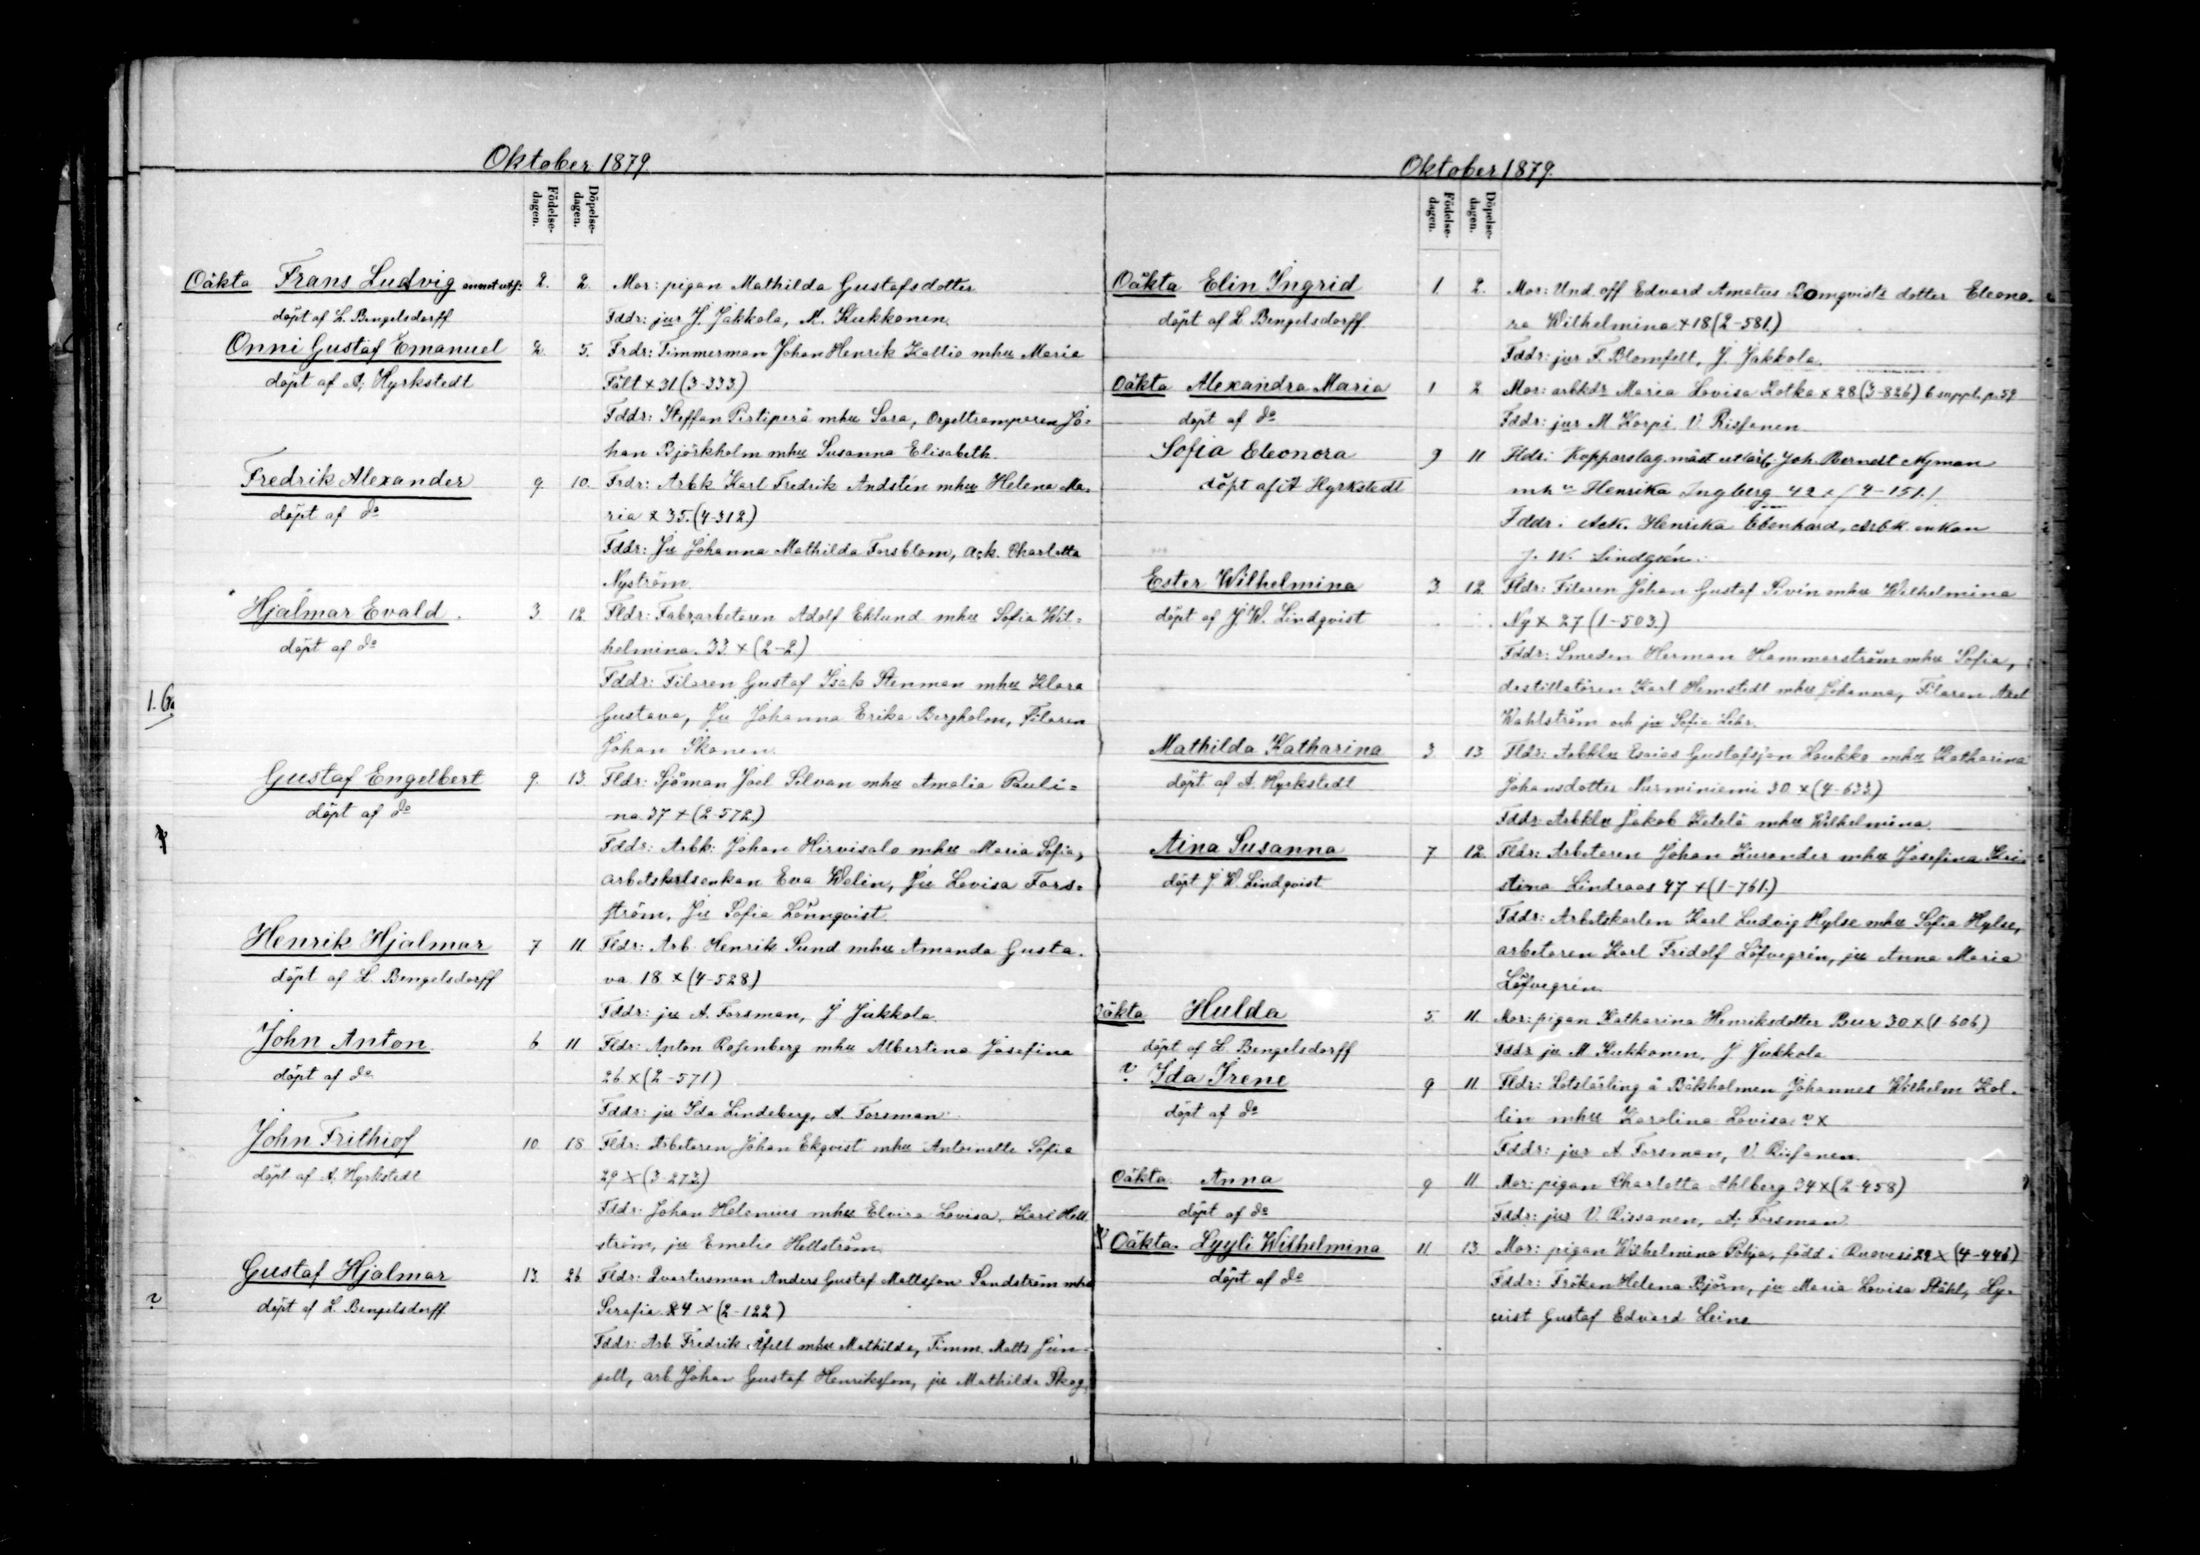 Oktober 1879.
Födelse-dagen.
Döpelse-dagen.
Oäkta Frans Ludvig 2. 2. Mor: pigan Mathilda Gustafsdotter
döpt af L. Bengelsdorff Fddr: jur J. Jakkola, M. Kukkonen.
Onni Gustaf Emanuel 2. 5. Frdr: Timmerman Johan Henrik Kallio mhu Maria
döpt af A. Hyrkstedt Fält x 31 (3-333.)
Fddr: Steffan Pirtiperä mhu Sara, Orgeltramparen Jo-
han Björkholm mhu Susanna Elisabeth.
Fredrik Alexander 9. 10. Frdr: Arbk Karl Fredrik Andstén mhu Helena Ma-
döpt af do ria x 35. (4-312.)
Fddr: Ju Johanna Mathilda Forsblom, a.k. Charlotta
Nyström.
Hjalmar Evald. 3 12. Fldr: Fabr.arbetaren Adolf Eklund mhu Sofia Wil=
döpt af do helmina. 33 x (2-2.)
Fddr: Filaren Gustaf Isak Stenman mhu Klara
1. Gustava, Ju Johanna Erika Bergholm, Filaren
Johan Skonen.
Gustaf Engelbert 9. 13. Fldr: Sjöman Joel Silvan mhu Amalia Pauli=
döpt af do na. 37 x (2-572.)
Fddr: Arbk: Johan Hirvisalo mhu Maria Sofia,
arbetskarlsenkan Eva Welin, Ju Lovisa Fors=
ström, Ju Sofia Lönnqvist.
Henrik Hjalmar 7 11. Fldr: Arb. Henrik Sund mhu Amanda Gusta-
döpt af L. Bengelsdorff va 18 x (4-528)
Fddr: ju A. Forsman, J Jakkola.
John Anton. 6 11 Fldr: Anton Rosenberg mhu Albertina Josefina
döpt af do 26 x (2-571)
Fddr: ju Ida Lindeberg, A. Forsman.
John Frithiof 10 18 Fldr: Arbetaren Johan Ekqvist mhu Antoinette Sofia
döpt af A. Hyrkstedt 29 x (3-272.)
Fddr: Johan Helenius mhu Elvira Lovisa, Karl Hell
ström, ju Emelie Hellström.
Gustaf Hjalmar 13. 26. Fldr: Qvartersman Anders Gustaf Mattsson Sandström mhu
? döpt af L. Bengelsdorff Serafia 24 x (2-122)
Fddr: Arb. Fredrik Åfelt mhu Mathilda, Timm. Matts Jun-
sell, arb Johan Gustaf Henriksson, ju Mathilda Skog
Oktober 1879.
Födelse-dagen.
Döpelse-dagen.
Oäkta Elin Ingrid 1. 2. Mor: Und. off Edvard Amatus Blomqvists dotter Eleono-
döpt af L Bengelsdorff ra Wilhelmina x 18 (2-581.)
Fddr: jur F. Blomfelt, J. Jakkola.
Oäkta Alexandra Maria 1 2 Mor: arbkdr Maria Lovisa Kotka x 28 (3-826) 6 suppl. p. 59
döpt af do Fddr: jur M. Korpi V. Rissanen
Sofia Eleonora 9 11 Fldr: Kopparslag.mäst. Joh. Berndt Nyman
döpt af A Hyrkstedt mhu Henrika Ingberg 42 x (4-151.)
Fddr: Ack. Henrika Ebenhard, Arbk. enkan
J. W. Lindgrén.
Ester Wilhelmina 3. 12. Fldr: Filaren Johan Gustaf Sivin mhu Wilhelmina
döpt af J W. Lindqvist Ny x 27 (1-503.)
Fddr: Smeden Herman Hammarström mhu Sofia,
destillatören Karl Hemstedt mhu Johanna, Filaren Axel
Wahlström och ju Sofia Lehr.
Mathilda Katharina 3 13 Fldr: Arbklu Esaias Gustafsson Loukko mhu Katharina
döpt af A. Hyrkstedt Johansdotter Nurminiemi 30 x (4-633.)
Fddr Arbklu Jakob Ketelä mhu Wilhelmina.
Aina Susanna 7 12. Fldr: Arbetaren Johan Kurander mhu Josefina Kri-
döpt J W Lindqvist stina Lindroos 47 x (1-761.)
Fddr: Arbetskarlen Karl Ludvig Hylse mhu Sofia Hylse,
arbetaren Karl Fridolf Löfvegrén, ju Anna Maria
Löfvegrén.
Oäkta Hulda 5. 11. Mor: pigan Katharina Henriksdotter Bur 30 x (1-606)
döpt af L. Bengelsdorff Fddr ju M Kukkonen, J Jakkola
? Ida Irene 9 11. Fldr: Lotslärling å Båkholmen Johannes Wilhelm Kol-
döpt af do lin mhu Karolina Lovisa ? x
Fddr: jur A Forsman, V. Rissanen.
Oäkta Anna 9 11. Mor: pigan Charlotta Ahlberg 34 x (2-458)
döpt af do Fddr: jur V. Rissanen, A. Forsman
Oäkta. Lyyli Wilhelmina 11 13. Mor: pigan Wilhelmina Pohja, född i Ruovesi 29 x (4-446)
döpt af do Fddr: Fröken Helena Björn, ju Maria Lovisa Ståhl, Ly-
ceist Gustaf Edvard Leino